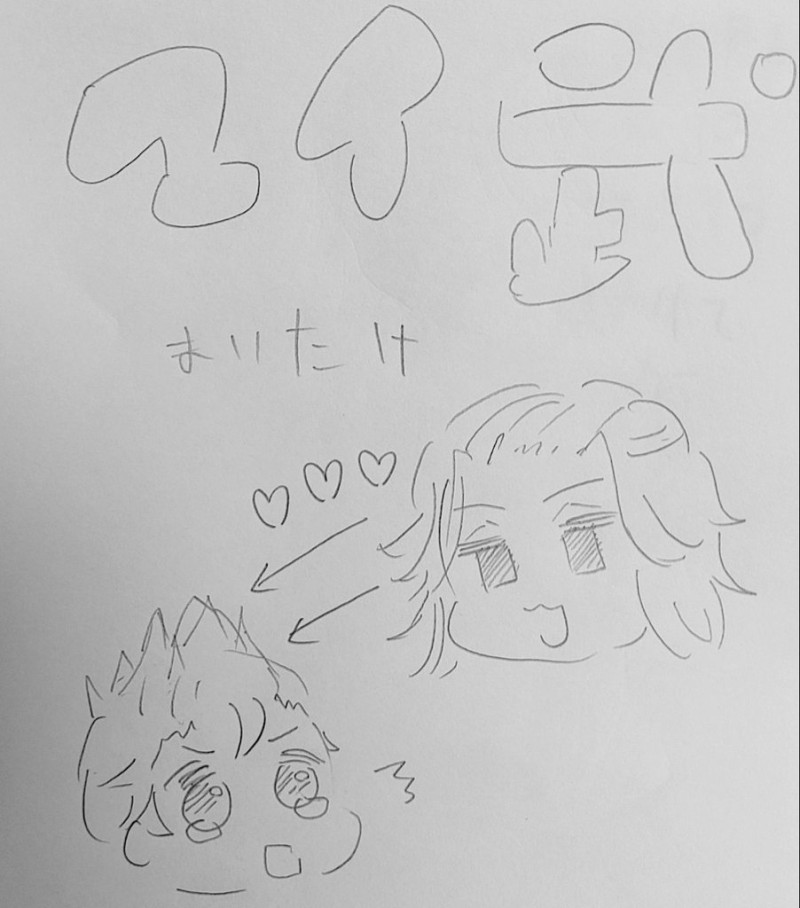 マイ武
まいたけ